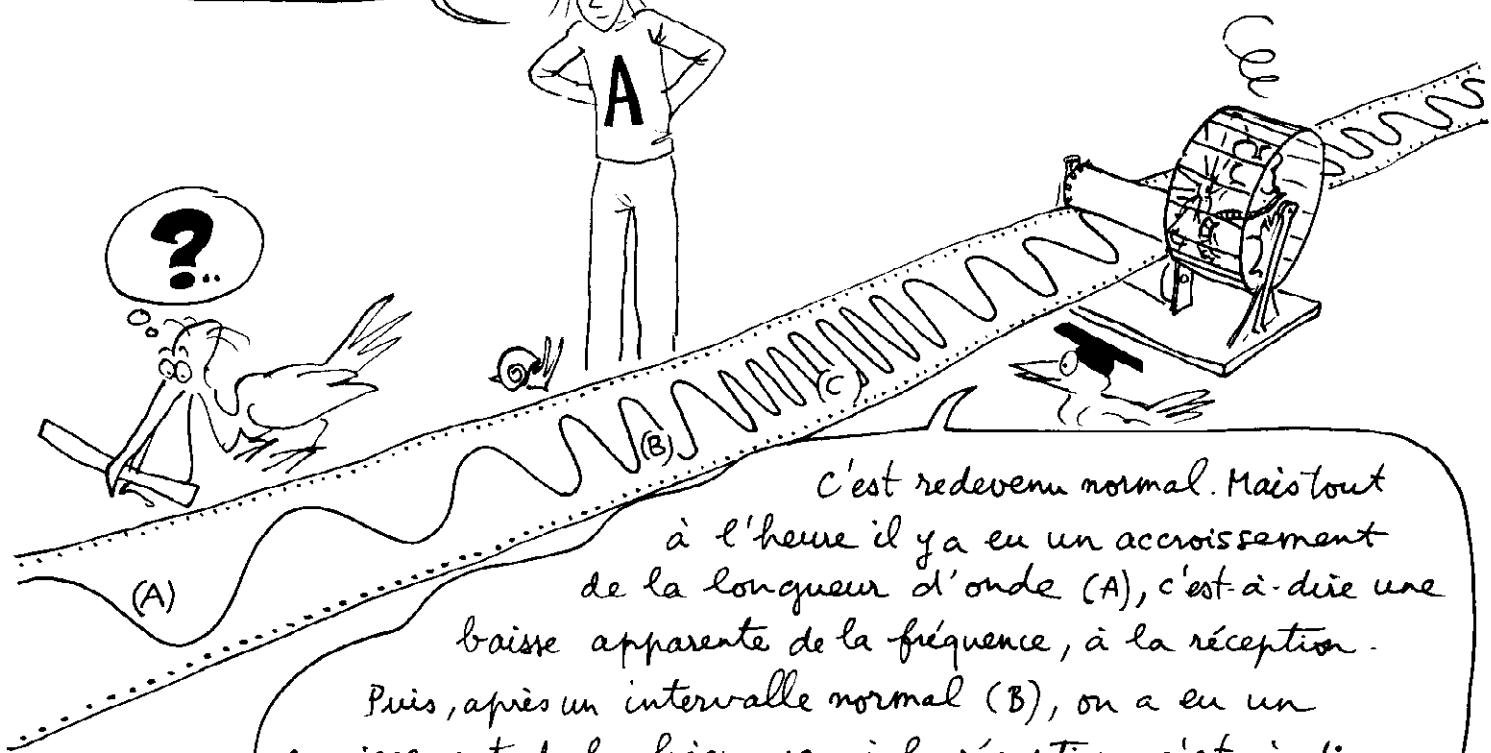 A
?..
(A)
(B)
C
C'est redevenu normal. Mais tout
à l'heure il y a eu un accroissement
de la longueur d'onde (A), c'est-à-dire une
baisse apparente de la fréquence, à la réception.
Puis, après un intervalle normal (B), on a eu un